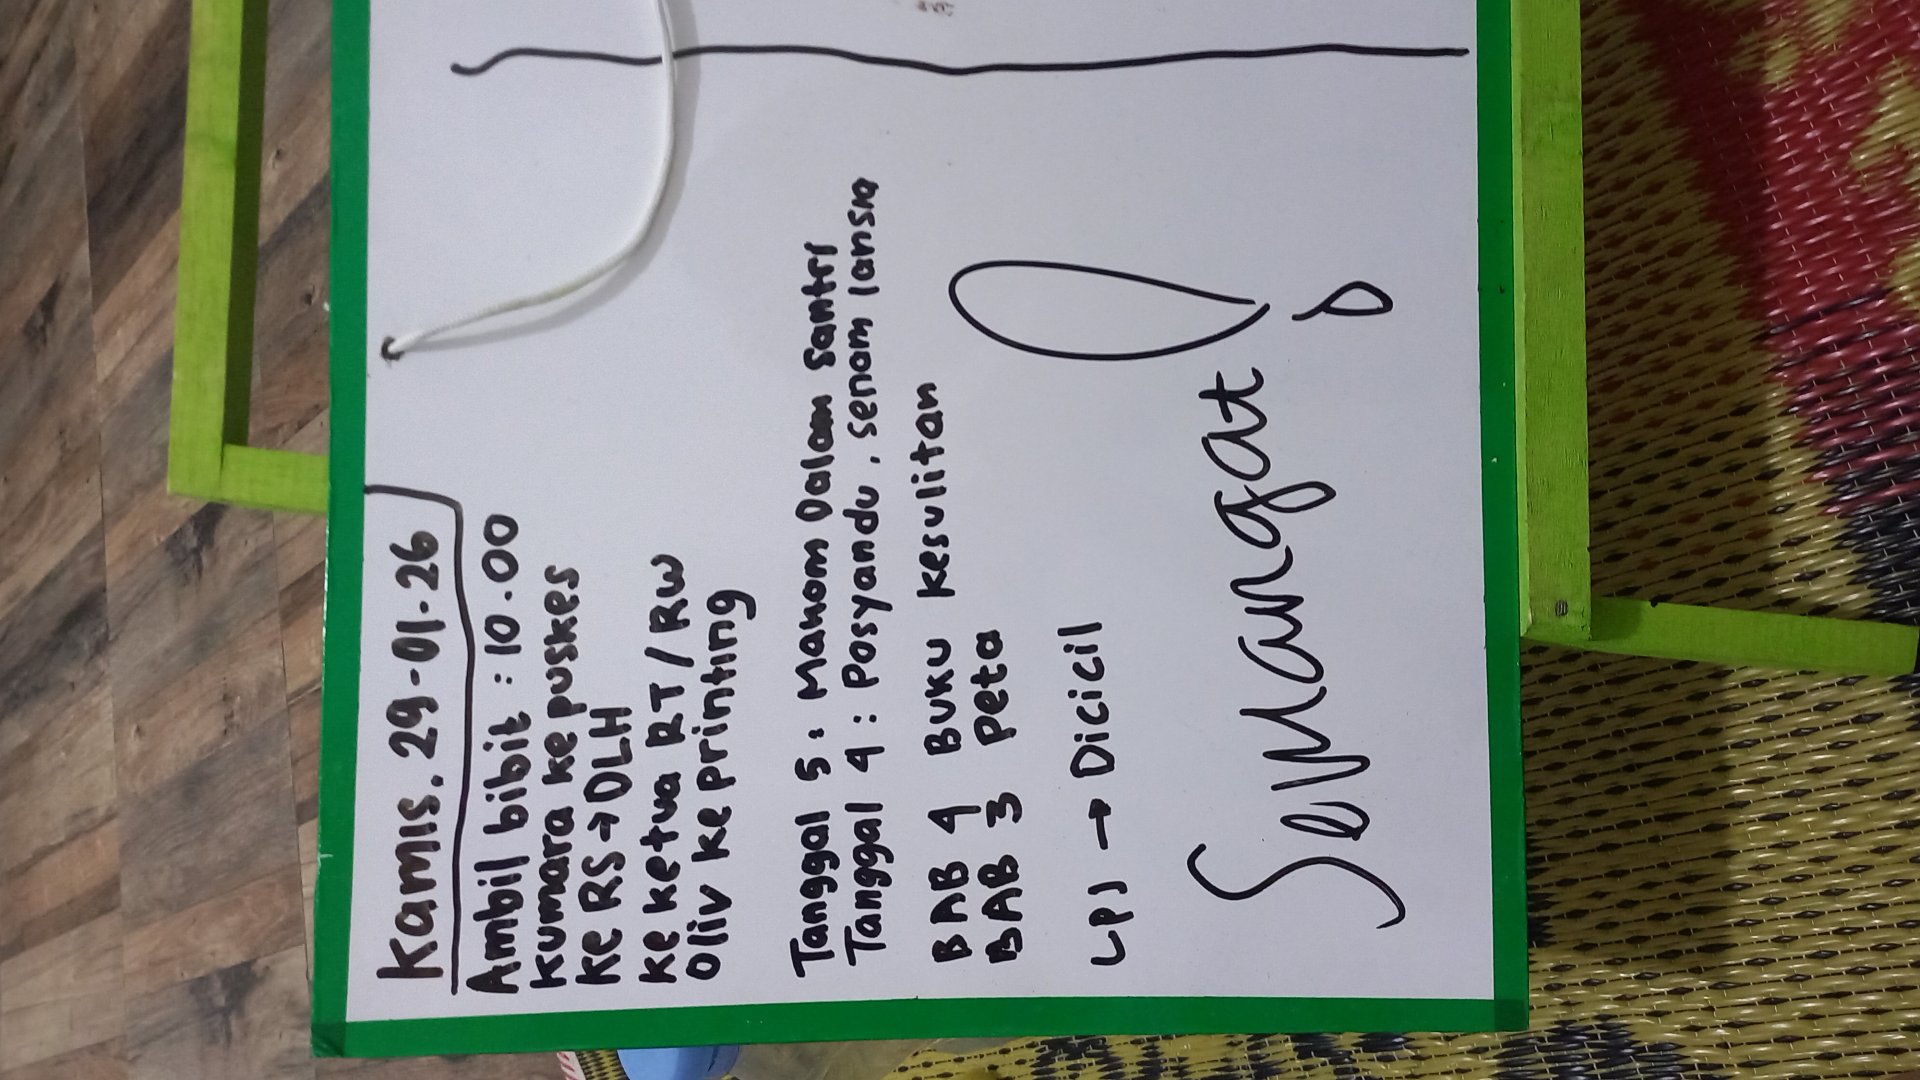 Kamis. 29-01-26
Ambil bibit : 10.00
Kumara ke puskes
Ke RS → DLH
Ke ketua RT / RW
Oliv ke printing
Tanggal 5 : Malam Dalam Santri
Tanggal 4 : Posyandu, senam lansia
BAB 4 Buku kesulitan
BAB 3 Peta
LPJ → Dicicil
Semangat !